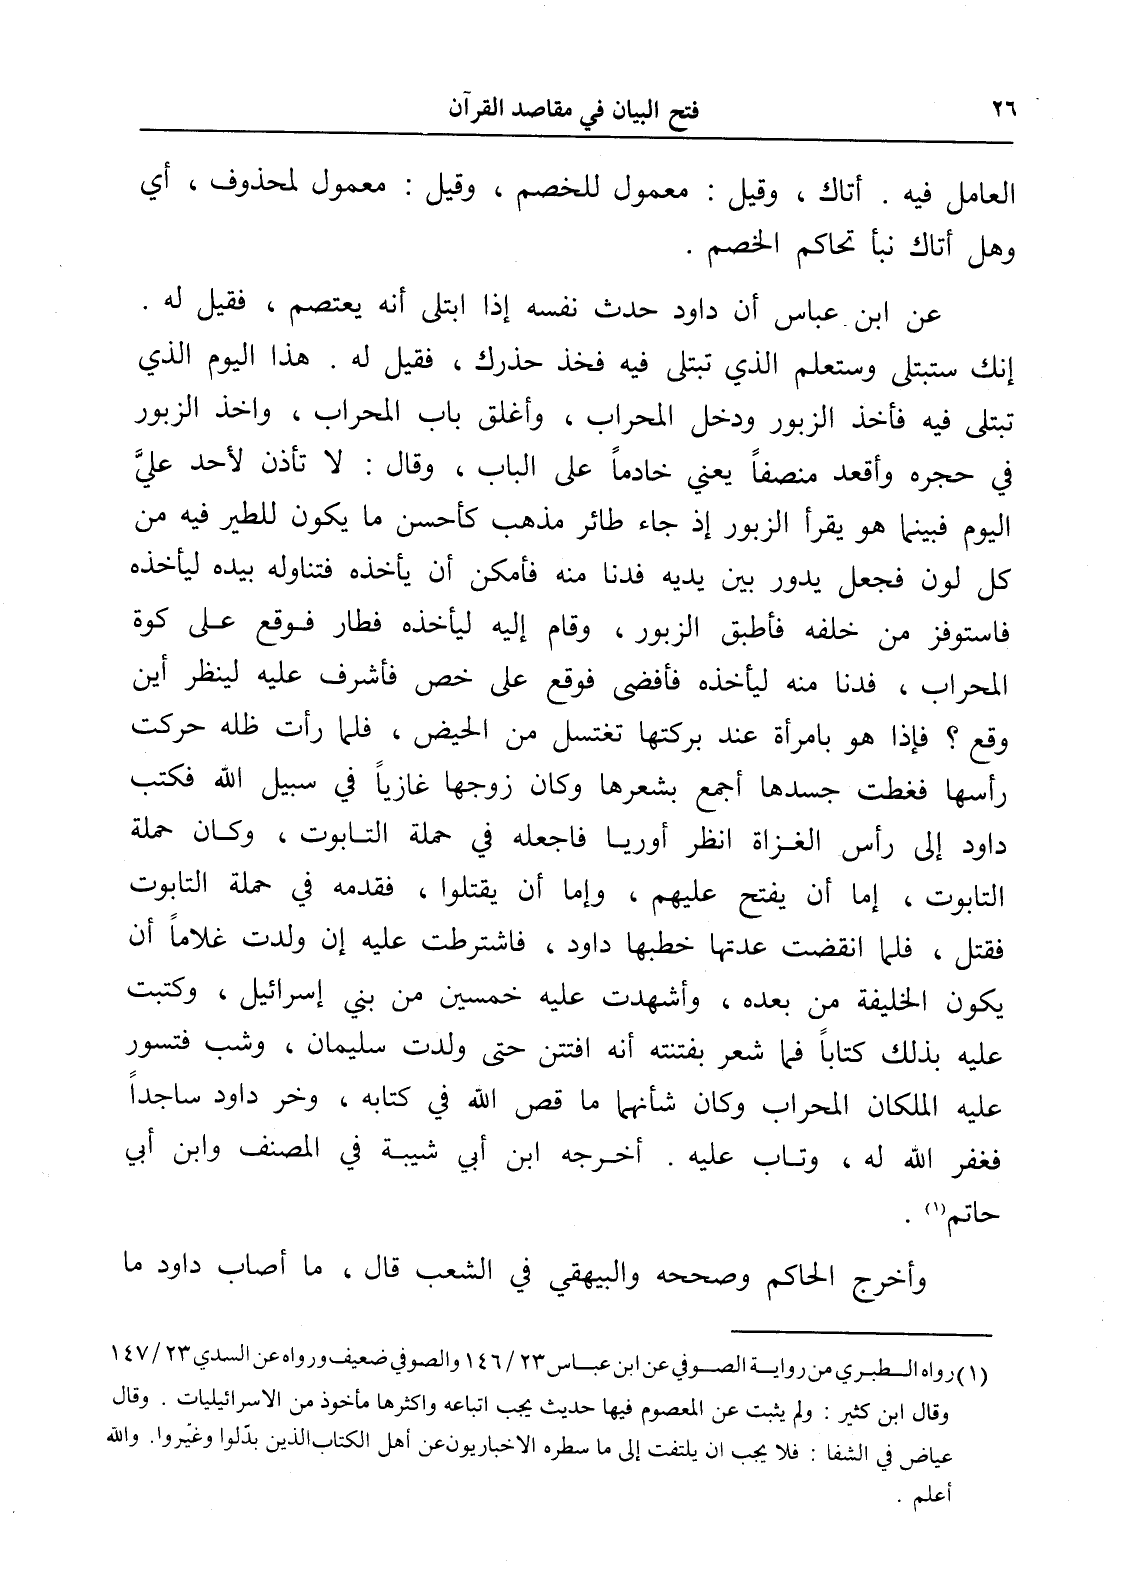 ٢٦
فتح البيان في مقاصد القرآن
العامل فيه . أتاك ، وقيل : معمول للخصم ، وقيل : معمول لمحذوف ، أي
وهل أتاك نبأ تحاكم الخصم .
عن ابن عباس أن داود حدث نفسه إذا ابتلى أنه يعتصم ، فقيل له .
إنك ستبتلى وستعلم الذي تبتلى فيه فخذ حذرك ، فقيل له . هذا اليوم الذي
تبتلى فيه فأخذ الزبور ودخل المحراب ، وأغلق باب المحراب ، واخذ الزبور
في حجره وأقعد منصفاً يعني خادماً على الباب ، وقال : لا تأذن لأحد عليَّ
اليوم فبينما هو يقرأ الزبور إذ جاء طائر مذهب كأحسن ما يكون للطير فيه من
كل لون فجعل يدور بين يديه فدنا منه فأمكن أن يأخذه فتناوله بيده ليأخذه
فاستوفز من خلفه فأطبق الزبور ، وقام إليه ليأخذه فطار فوقع على كوة
المحراب ، فدنا منه ليأخذه فأفضى فوقع على خص فأشرف عليه لينظر أين
وقع ؟ فإذا هو بامرأة عند بركتها تغتسل من الحيض ، فلما رأت ظله حركت
رأسها فغطت جسدها أجمع بشعرها وكان زوجها غازياً في سبيل الله فكتب
داود إلى رأس الغزاة انظر أوريا فاجعله في حملة التابوت ، وكان حملة
التابوت ، إما أن يفتح عليهم ، وإما أن يقتلوا ، فقدمه في حملة التابوت
فقتل ، فلما انقضت عدتها خطبها داود ، فاشترطت عليه إن ولدت غلاماً أن
يكون الخليفة من بعده ، وأشهدت عليه خمسين من بني إسرائيل ، وكتبت
عليه بذلك كتاباً فما شعر بفتنته أنه افتتن حتى ولدت سليمان ، وشب فتسور
عليه الملكان المحراب وكان شأنهما ما قص الله في كتابه ، وخر داود ساجداً
فغفر الله له ، وتاب عليه . أخرجه ابن أبي شيبة في المصنف وابن أبي
حاتم(١) .
وأخرج الحاكم وصححه والبيهقي في الشعب قال ، ما أصاب داود ما
(١) رواه الطبري من رواية الصوفي عن ابن عباس ٢٣/ ١٤٦ والصوفي ضعيف ورواه عن السدي ٢٣/ ١٤٧
وقال ابن كثير : ولم يثبت عن المعصوم فيها حديث يجب اتباعه واكثرها مأخوذ من الاسرائيليات . وقال
عياض في الشفا : فلا يجب ان يلتفت إلى ما سطره الاخباريون عن أهل الكتاب الذين بدّلوا وغيّروا. والله
أعلم .